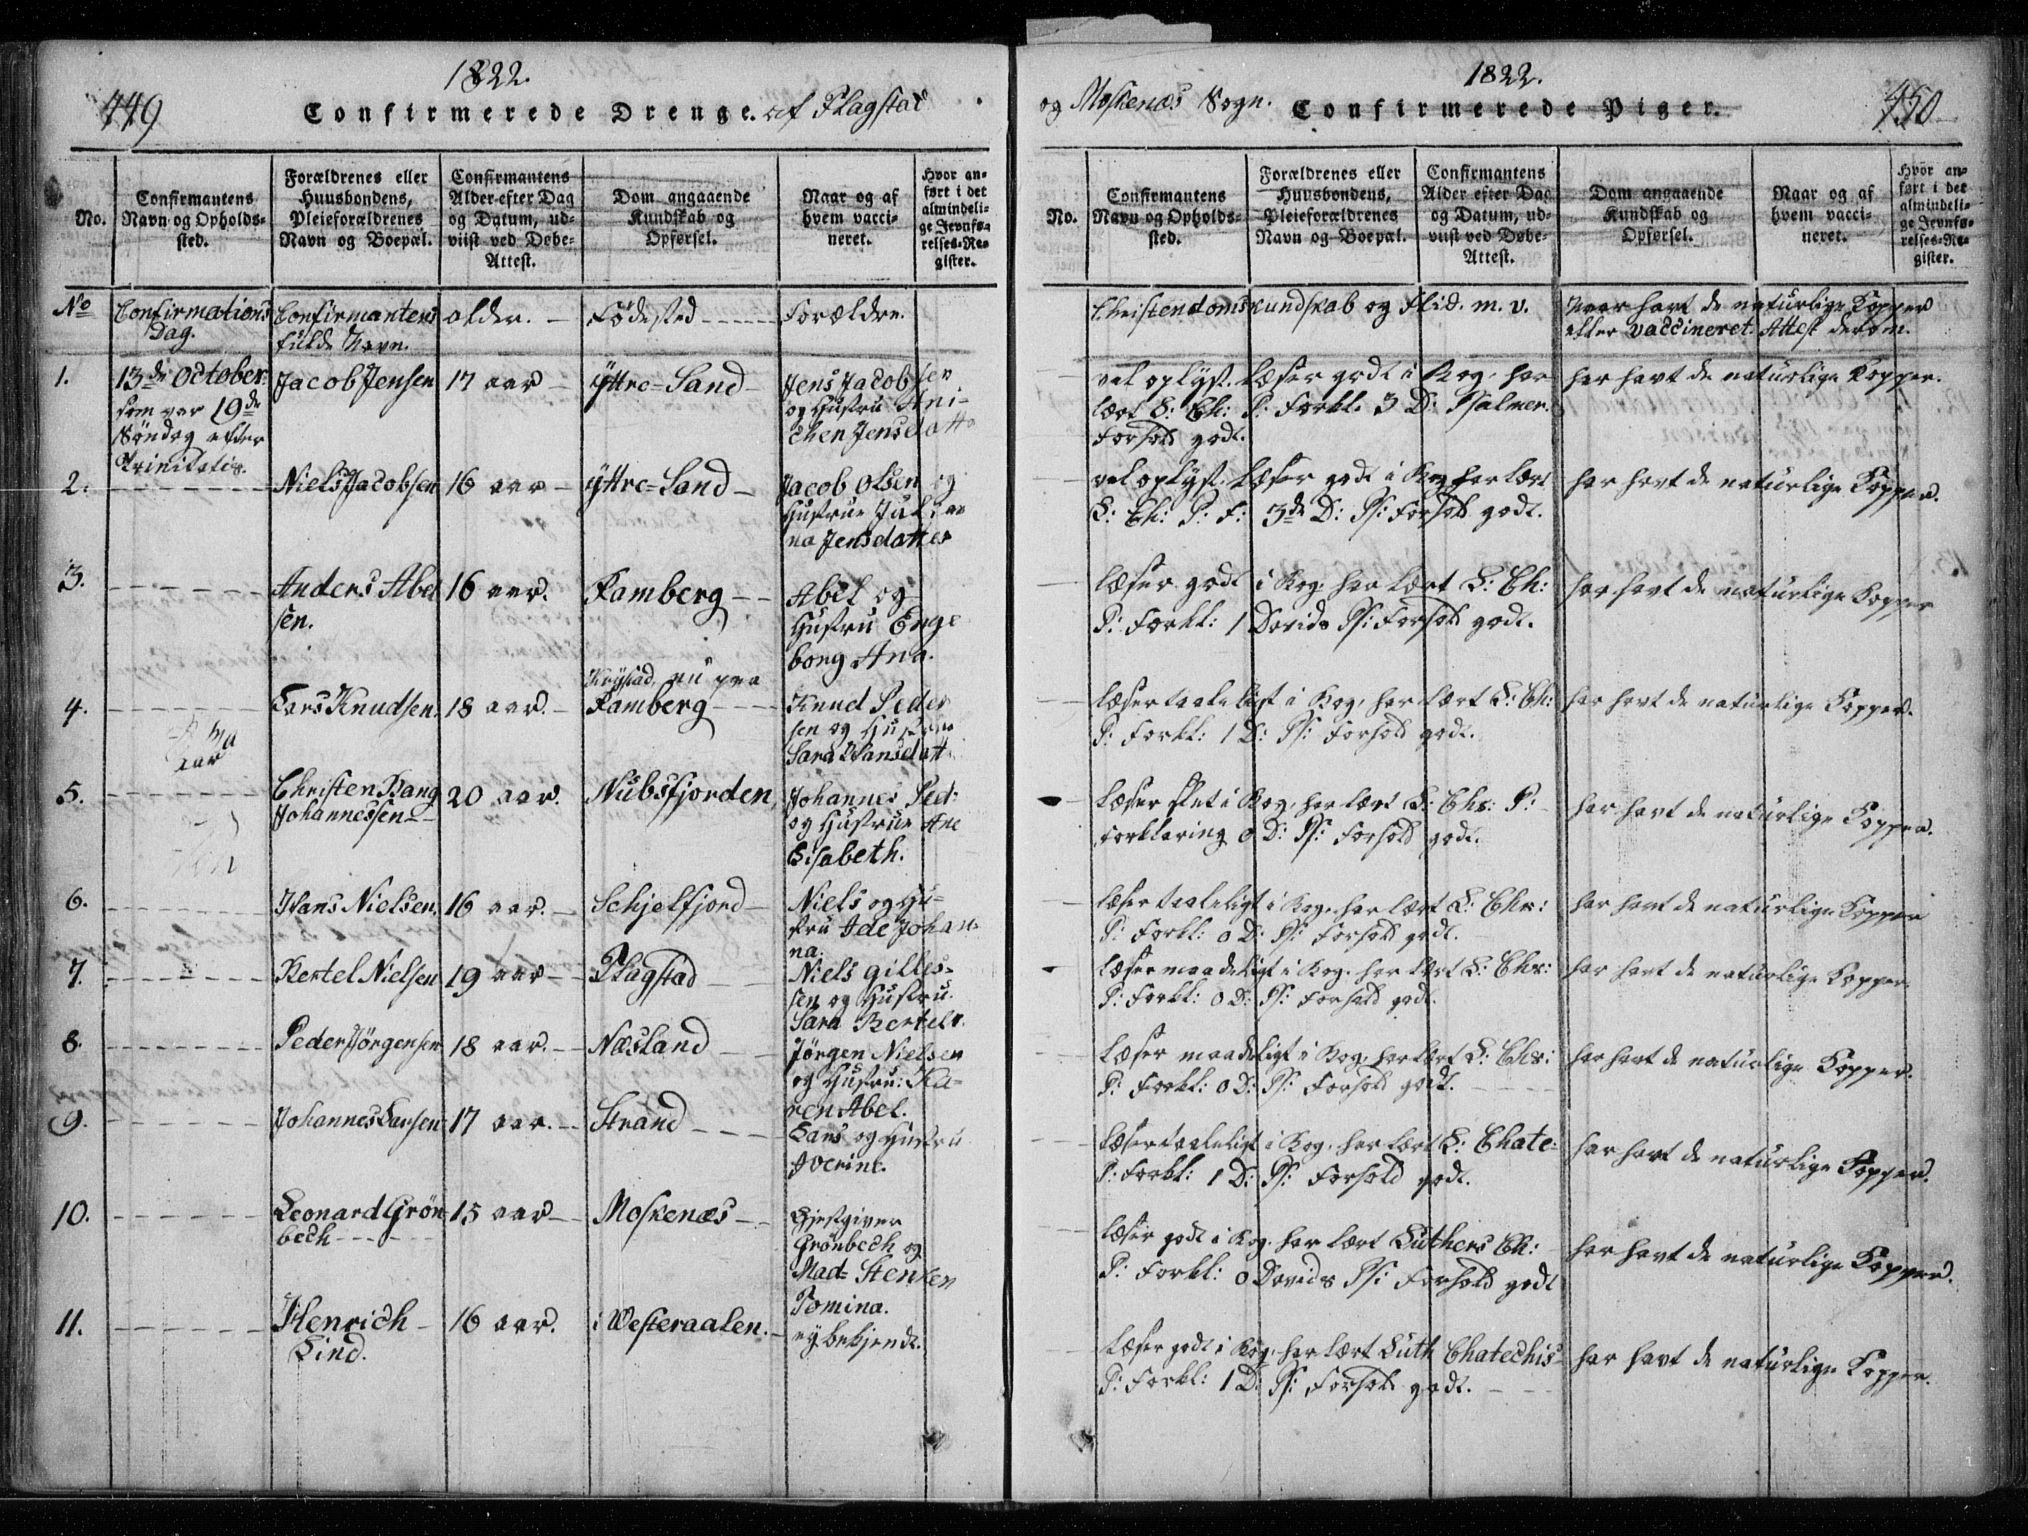 1822.
449
Confirmerede Drenge. af Flagstad
No.
Confirmantens
Navn og Opholds-
sted.
Forældrenes eller
Huusbondens,
Pleieforældrenes
Navn og Boepæl.
Confirmantens
Alder efter Dag
og Datum, ud-
viist ved Døbe-
Attest.
Dom angaaende
Kundskab og
Opførsel.
Naar og af
hvem vacci-
neret.
Hvor an-
ført i det
almindeli-
ge Jevnfø-
relses-Re-
gister.
No Confirmations Confirmantens alder. - Födested - Forældre.
Dag. fulde Navn.
1. 13de October. Jacob Jensen 17 aar - Yttre-Sand - Jens Jacobsen
som var 19de og Hustru Ani-
Söndag efter chen Jensdatte
Trinitatis.
2. Niels Jacobsen 16 aar - Yttre-Sand - Jacob Olsen og
Hustrue Juli
na Jensdatter
3. Anders Abel 16 aar. Ramberg - Abel og
sen. Hustru Enge
borg Ana.
Krystad, nu paa
4. Lars Knudsen. 18 aar. - Ramberg - Knud Peder
sen og Hustrue
Sara Hansdatt
5. Christen Bang 20 aar. Nubsfjorden, Johannes Ped:
Johannessen - og Hustrue Ane
Elisabeth.
6. Hans Nielsen. 16 aar. - Schjelfjord - Niels og Hu-
stru Ide Johan-
na.
7. Bertel Nielsen 19 aar - Flagstad - Niels Gilles-
sen og Hustru.
Sara Bertels.
8. Peder Jörgensen 18 aar. - Næsland - Jörgen Nielsen
og Hustru: Ka-
ren Abel.
9. Johannes Larsen 17 aar. - Strand - Lars og Hustru
Iverine.
10. Leonard Grön 15 aar - Moskenæs - Gjestgiver
bech - Grönbech og
Mad= Stenken
Tomina.
11. Henrich - 16 aar. i Westeraalen. - ey bekjendt.
Lind.
1822.
og Moskenæs Sogn. Confirmerede Piger.
450
No.
Confirmantens
Navn og Opholds-
sted.
Forældrenes eller
Huusbondens,
Pleieforældrenes
Navn og Boepæl.
Confirmantens
Alder efter Dag
og Datum, ud-
viist ved Døbe-
Attest.
Dom angaaende
Kundskab og
Opførsel.
Naar og af
hvem vacci-
neret.
Hvor an-
ført i det
almindeli-
ge Jevnfø-
relses-Re-
gister.
Christendomskundskab og Flid. m. v. Naar havt de naturlige Kopper
eller vaccineret. Attest derom.
vel oplyst. læser godt i Bog, har har havt de naturlige Kopper.
lært L: Ch: P: Forkl. 3 D: Psalmer.
Forhold godt.
vel oplyst. læser godt i Bog har lært har havt de naturlige Kopper.
L: Ch: P: F: 3de D: Ps: Forhold godt.
læser godt i Bog, har lært L: Ch: har havt de naturlige Kopper
P: Forkl: 1 Davids Ps: Forhold godt.
læser taaleligt i Bog, har lært L: Ch: har havt de naturlige Kopper.
P: Forkl: 1 D: Ps: Forhold godt.
læser slet i Bog, har lært L: Chr: P: har havt de naturlige Kopper.
Forklaring 0 D: Ps: Forhold godt.
læser taaleligt i Bog, har lært L: Chr: har havt de naturlige Kopper
P: Forkl: 0 D: Ps: Forhold godt.
læser maadeligt i Bog. har lært L: Chr: har havt de naturlige Kopper.
P: Forkl: 0 D: Ps: Forhold godt.
læser maadeligt i Bog, har lært L: Chr: har havt de naturlige Kopper.
P: Forkl: 0 D: Ps: Forhold godt.
læser taaleligt i Bog, har lært L: Chate: har havt de naturlige Kopper.
P: Forkl: 1 D: Ps: Forhold godt.
læser godt i Bog, har lært Luthers Ch: har havt de naturlige Kopper.
P: Forkl: 0 Davids Ps: Forhold godt
læser godt i Bog, har lært Luth Chatechis- har havt de naturlige Kopper.
P: Forkl: 1 D: Ps: Forhold godt.